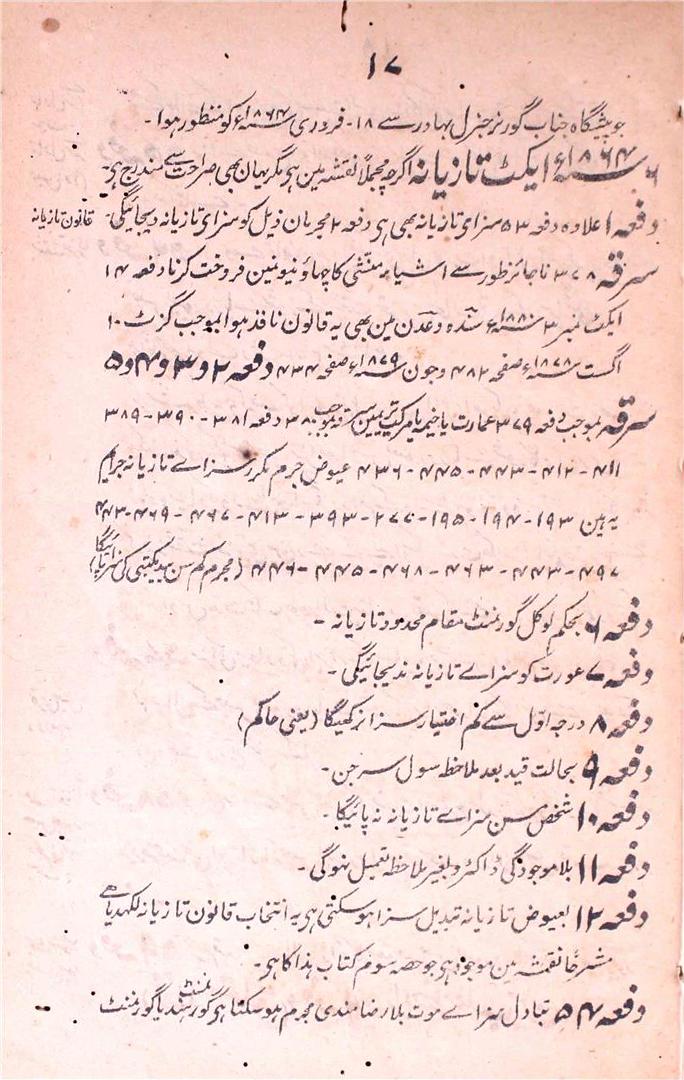 ۱۷
جو پیشگاہ جناب گورنر جنرل بہادر سے ۱۸ - فروری ۱۸۶۴ء کو منظور ہوا -
۶ ۱۸۶۴ء ایکٹ تازیانہ اگرچہ مجملاً نقشہ مین ہو مگر یہان بھی صراحت سے مندرج ہی -
دفعہ ۱ علاوہ دفعہ ۵۳ سزای تازیانہ بھی ہی دفعہ ۲ مجرمان ذیل کو سزای تازیانہ دیجائیگی - قانون تازیانہ
سرقہ ۳۷۸ ناجائز طور سے اشیاء منشی کا چھاؤنیونمین فروخت کرنا دفعہ ۱۴
ایکٹ نمبر ۳ ۱۸۸۰ء سندہ و عدن مین بھی یہ قانون نافذ ہوا بموجب گزٹ ۱۰
اگست ۱۸۷۸ء صفحہ ۴۸۲ و جون ۱۸۷۹ء صفحہ ۴۳۴ دفعہ ۲ و ۳ و ۴ و ۵
سرقہ بموجب دفعہ ۳۷۹ عمارت یا خیمہ یا مرکب تری مین سرقہ بموجب ۳۸۰ دفعہ ۳۸۱ - ۳۹۰ - ۳۸۹
۴۱۱ - ۴۱۲ - ۴۴۳ - ۴۴۵ - ۴۳۶ عیوض جرم مکرر سزاے تازیانہ جرایم
یہ ہین ۱۹۳ - ۱۹۴ - ۱۹۵ - ۲۷۷ - ۳۹۳ - ۴۱۳ - ۴۶۷ - ۴۶۹ - ۴۴۳
۴۹۷ - ۴۴۳ - ۴۶۳ - ۴۶۸ - ۴۴۵ - ۴۴۶ (مجرم کم سن بید مکتبی کی سزا پائیگا)
دفعہ ۶ بحکم لوکل گورنمنٹ مقام محدود تازیانہ -
دفعہ ۷ عورت کو سزاے تازیانہ ندیجائیگی -
دفعہ ۸ درجہ اوّل سے کم اختیار سزا نرکھیگا (یعنی حاکم)
دفعہ ۹ بحالت قید بعد ملاحظہ سول سرجن -
دفعہ ۱۰ شخص مسن سزاے تازیانہ نہ پائیگا -
دفعہ ۱۱ بلا موجودگی ڈاکٹر و بغیر ملاحظہ تعمیل نہوگی -
دفعہ ۱۲ بعیوض تازیانہ تبدیل سزا ہو سکتی ہی یہ انتخاب قانون تازیانہ لکھدیا ہے
مشرحاً نقشہ مین موجود ہو جو حصہ سوم کتاب ہذا کا ہی -
دفعہ ۵۴ تبادل سزاے موت بلا رضامندی مجرم ہو سکتا ہو گورنمنٹ ہند یا گورنمنٹ